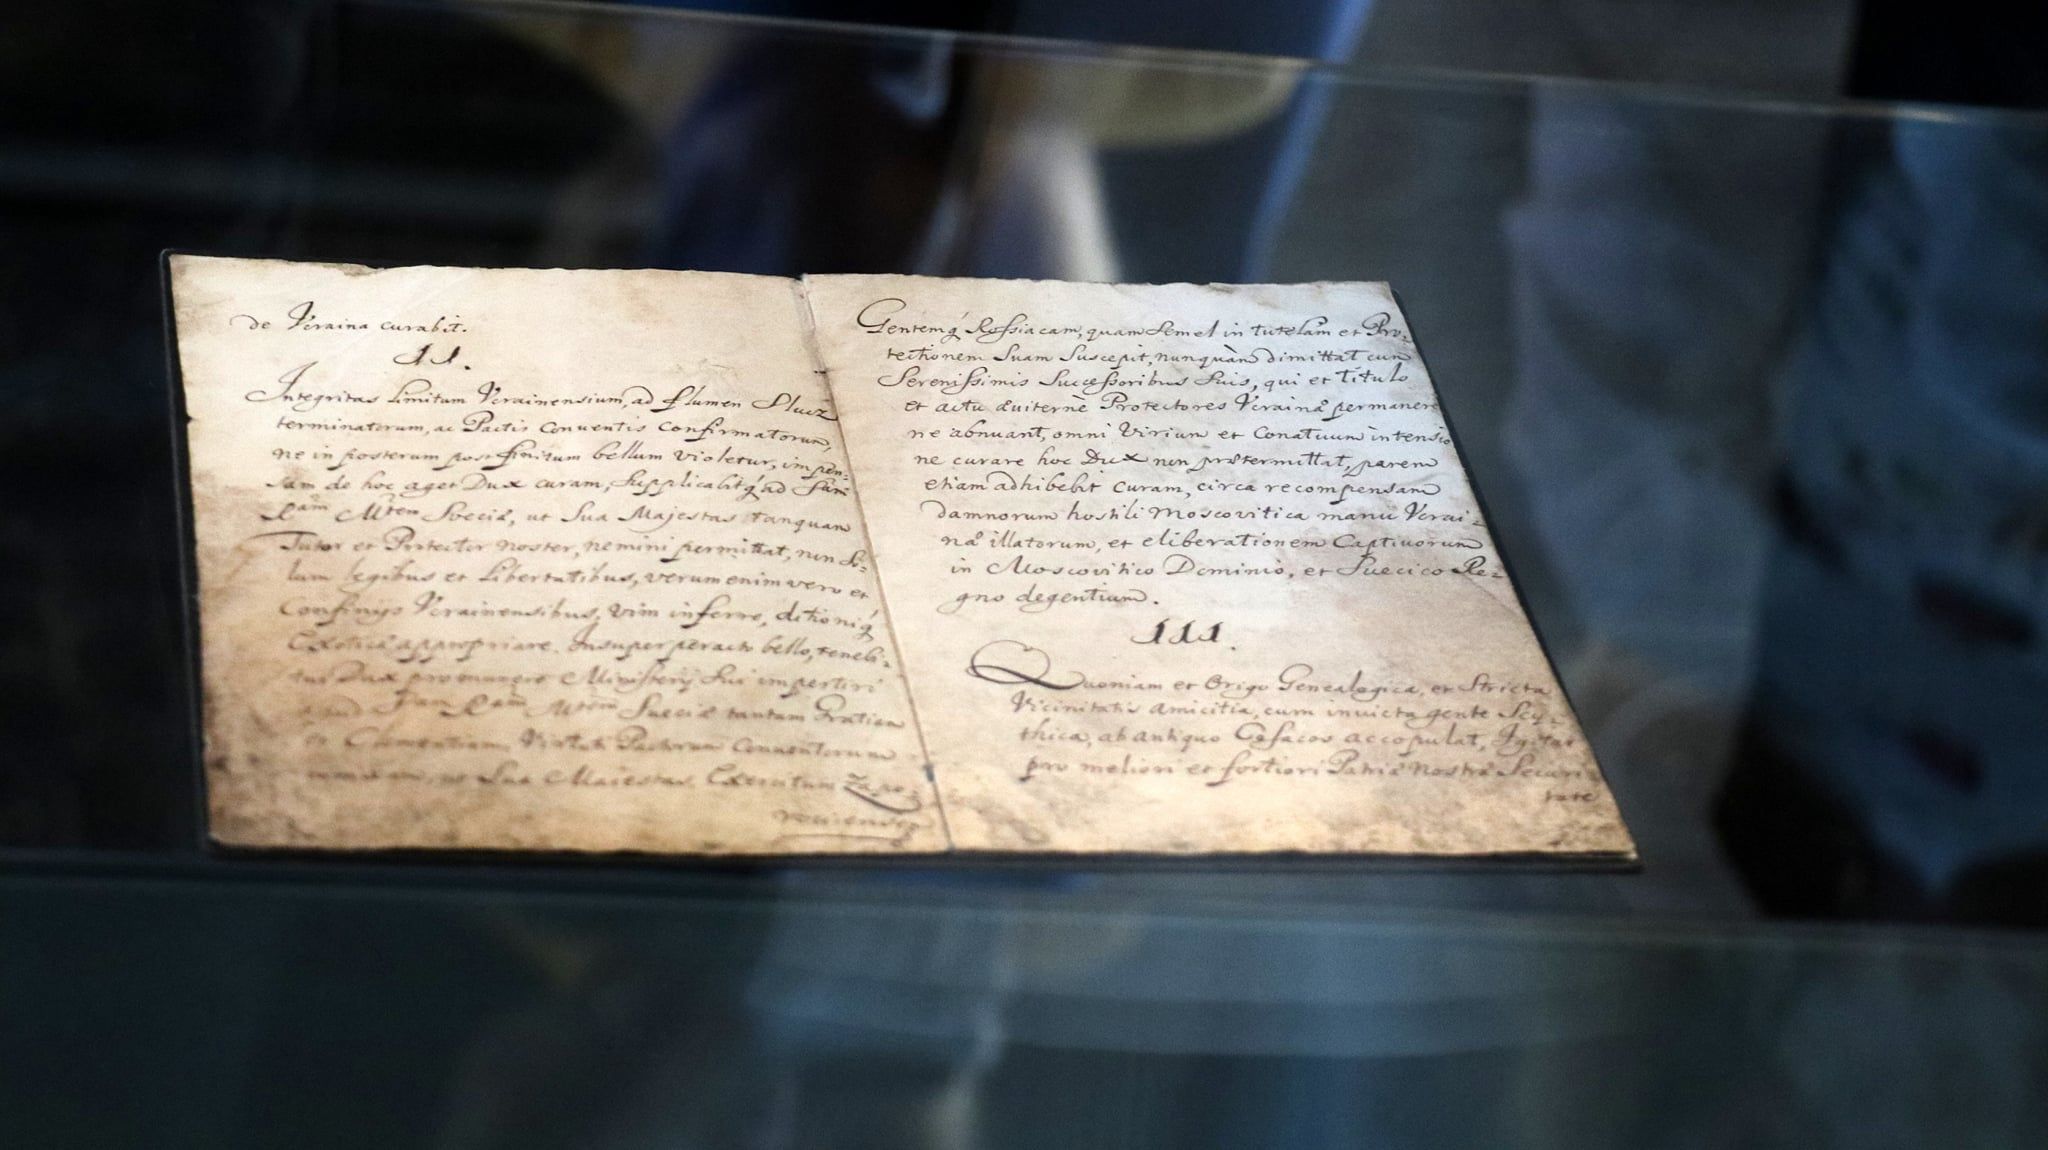 de Vcraina curabit.
II.
Integritas limitum Vcrainensium, ad flumen Slucz
terminatorum, ac Pactis Conventis Confirmatorum,
ne in posterum post finitum bellum violetur, impen-
sam de hoc aget Dux curam, supplicabitq́ ad
Ram Mtem Sveciæ, ut Sua Majestas tanquam
Tutor et Protector noster, nemini permittat, non So-
lum legibus et libertatibus, verum enim vero et
Confinijs Vcrainensibus, vim inferre, ditioniq́
Exoticæ appropriare. Insuper peracto bello, tenebi-
tur Dux pro munere Ministerij Sui impertiri
apud Ram Mtem Sueciæ tantam Gratiam
et Clementiam, Virtute Pactorum Conventorum
ut Sua Maiestas Exercitum Zapo-
roviensem
Gentemq́ Rossiacam, quam Semel in tutelam et Pro-
tectionem Suam Suscepit, nunquàm dimittat cum
Serenissimis Successoribus Suis, qui et titulo
et actu æviternè Protectores Vcrainæ permanere
ne abnuant, omni Virium et Conatuum intensio
ne curare hoc Dux non prætermittat, parem
etiam adhibebit curam, circa recompensam
damnorum hostili Moscovitica manu Vcrai-
næ illatorum, et eliberationem Captivorum
in Moscovitico Dominio, et Suecico Re-
gno degentium.
III.
Quoniam et Origo Genealogica, et Stricta
Vicinitatis amicitia, cum invicta gente Scy-
thica, ab antiquo Cosacos accopulat, Igitur
pro meliori et fortiori Patriæ Nostræ Securi
tate